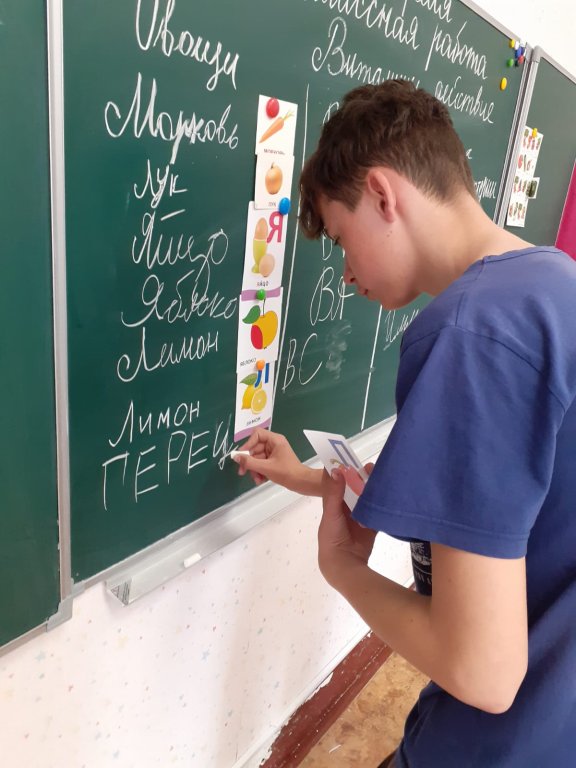 Овощи
Морковь
Лук
Яйцо
Яблоко
Лимон
Лимон
ПЕРЕЦ
работа
Витамин действие
ЛУК
Я
ЯЙЦО
ЯБЛОКО
Л
ЛИМОН
ВА
ВС
П